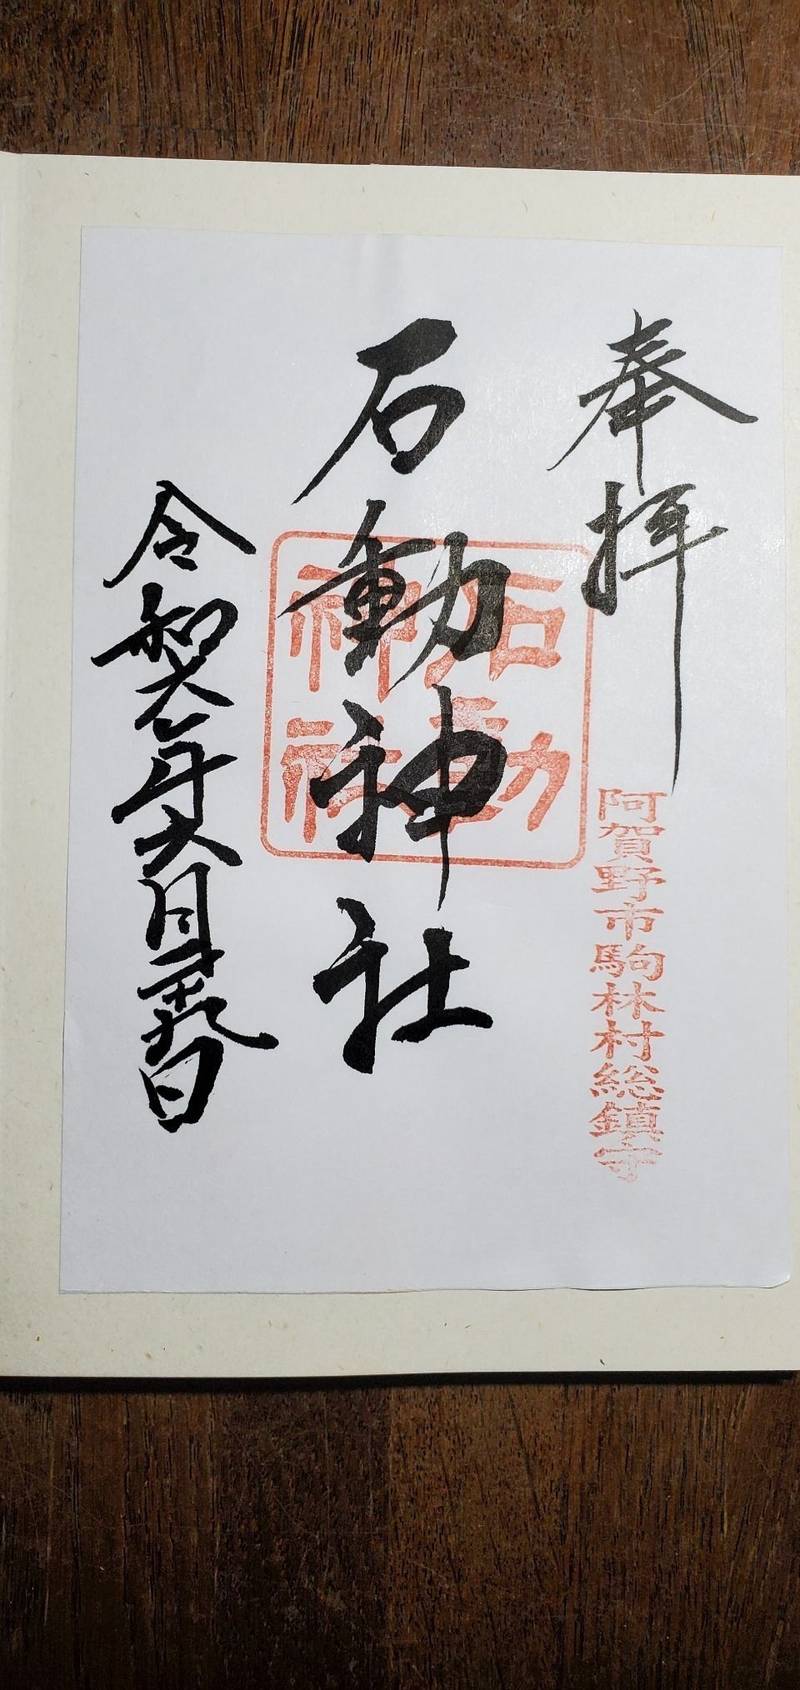 奉拝
阿賀野市駒林村総鎮守
石動神社
石動
神社
令和六年六月二十九日